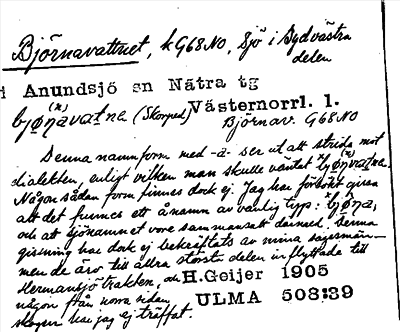 Björnavattnet, k G68NO, sjö i Bydvästra
delen
i Anundsjö sn Nätra tg
(Skorped) Västernorrl. l.
Björnav. G68NO
Denna namnform med -a- ser ut att strida mot
dialekten, enligt vilken man skulle väntat
Någon sådan form finnes dock ej. Jag har förbökt gissa
att det funnes ett ånamn av vanlig typ: bjøna,
och att sjönamnet vore sammansatt därmed. Denna
gissning har dock ej bekräftats av mina sagesmän
men de äro till allra största delen inflyttade till
Hermansjötrakten, och H. Geijer 1905
någon från norra sidan ULMA 508:39
skogen har jag ej träffat.